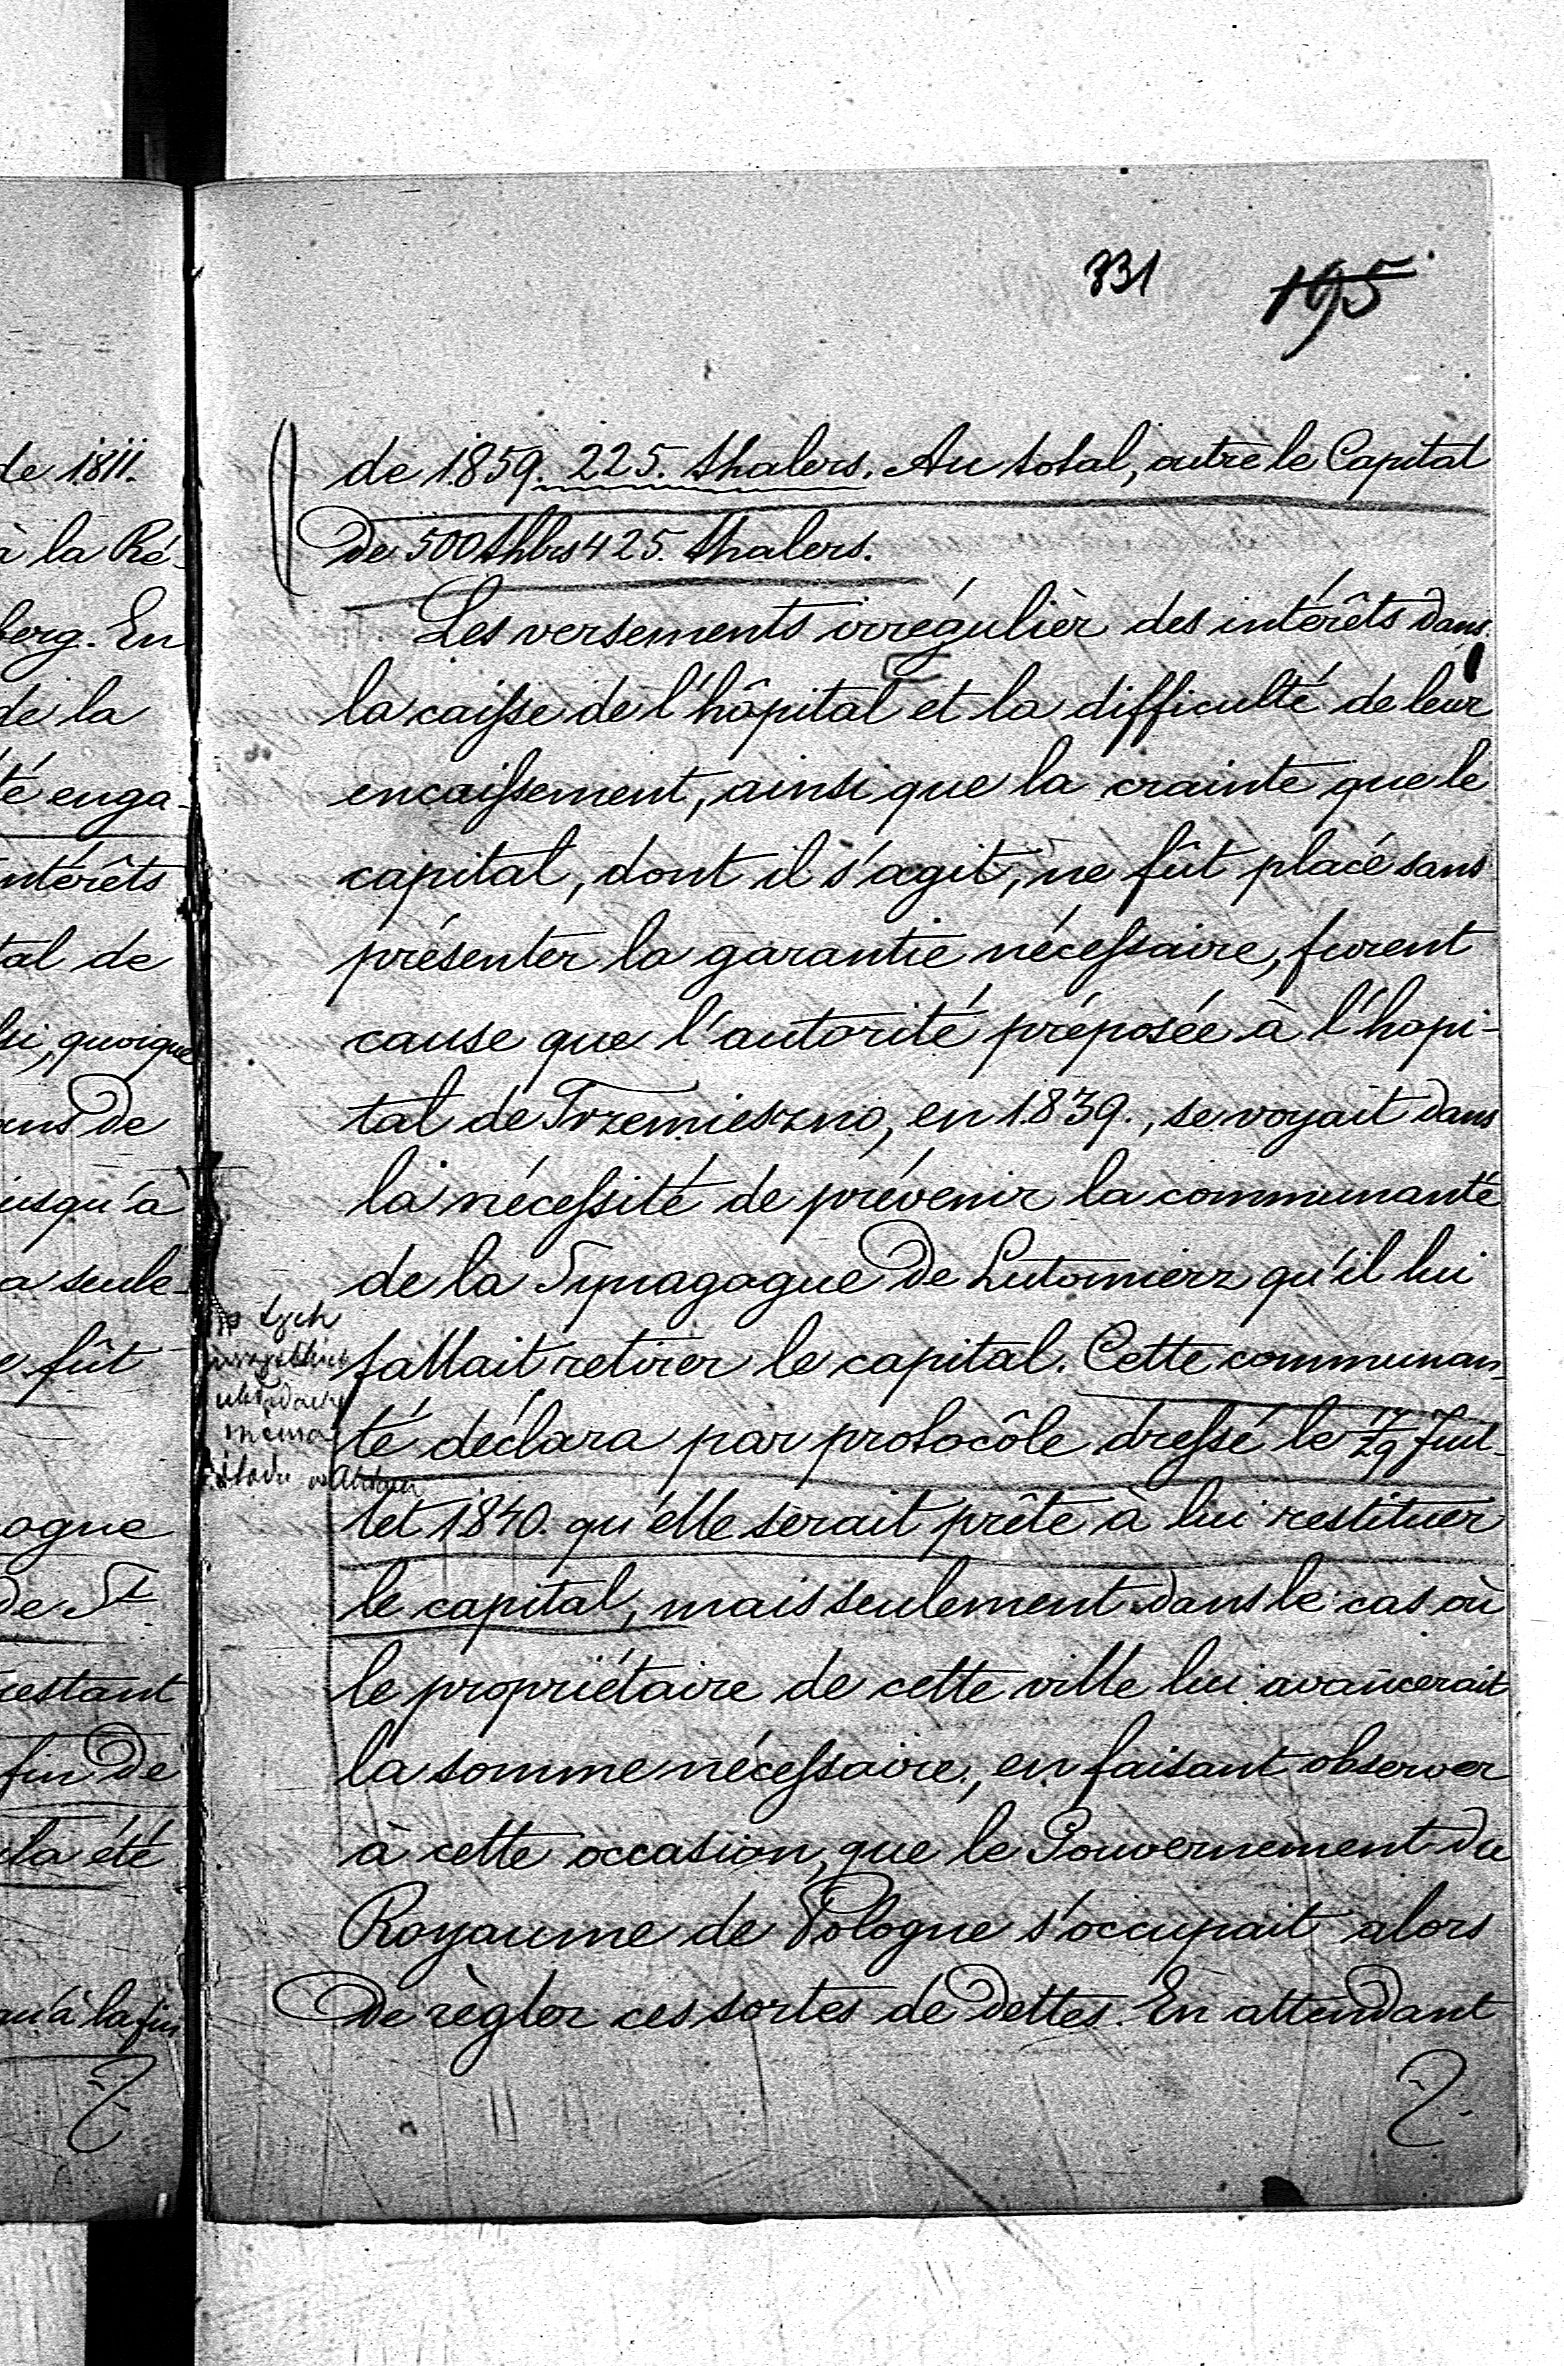 331 195
de 1859. 225. thalers. Au total, outre le Capital
de 500 thlrs 425. thalers.
Les versements irrégulièr des intérêts dans
la caisse de l'hôpital et la difficulté de leur
encaissement, ainsi que la crainte que le
capital, dont il s'agit, ne fût placé sans
présenter la garantie nécessaire, furent
cause que l'autorité préposée à l'hopi-
tal de Trzemieszno, en 1839., se voyait dans
la nécessité de prévenir la communauté
de la Synagogue de Lutomierz qu'il lui
fallait retirer le capital. Cette communau-
té déclara par protocôle dressé le 17/29 Juil-
let 1840. qu'elle serait prête à lui restituer
le capital, mais seulement dans le cas où
le propriétaire de cette ville lui avancerait
la somme nécessaire, en faisant observer
à cette occasion, que le Gouvernement du
Royaume de Pologne s'occupait alors
de règler ces sortes de dettes. En attendant
de 1811.
à la Ré-
berg. En
de la
té enga-
intérêts
tal de
si, quoique
ans de
jusqu'à
a seule-
e fût
ogue
de St
restant
fin de
cla été
qu'à la fin